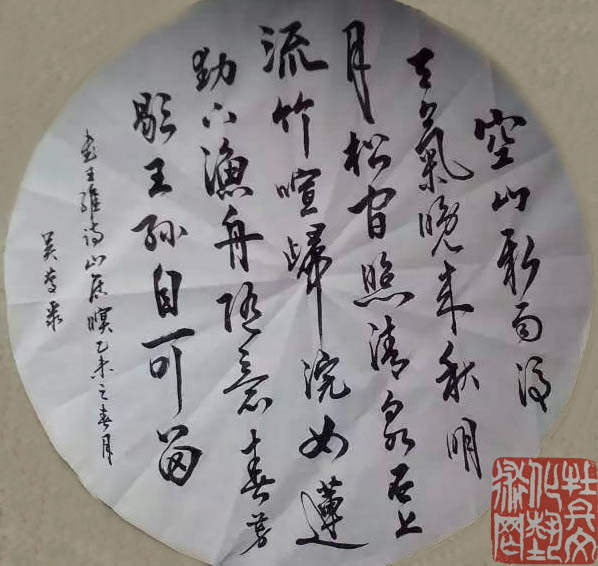 空山新雨後
天氣晚来秋明
月松间照清泉石上
流竹喧歸浣女蓮
動下漁舟随意春芳
歇王孫自可留
书王維诗山居暝乙未之春月
吴
杜兵文
化藝
術网